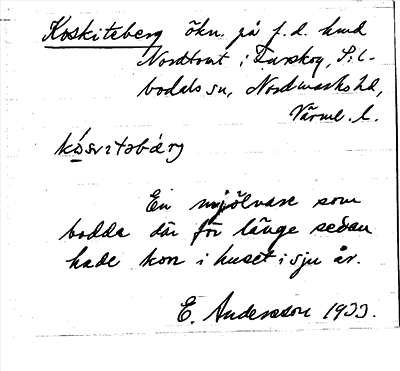 Koskiteberg ökn. på f.d. hmd
Nordtomt i Larskog, Sil-
bodals sn, Nordmarks hd,
Värml. l.
En mjölnare som
bodde där för länge sedan
hade kon i huset i sju år.
E. Andersson 1933.